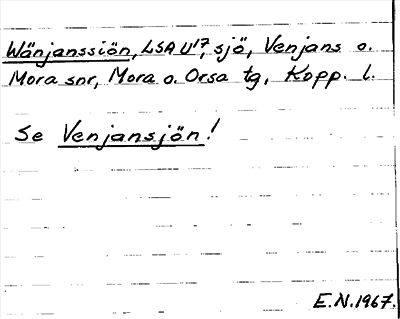 Wänjanssiön, LSA U¹⁷, sjö, Venjans o.
Mora snr, Mora o. Orsa tg, Kopp. l.
Se Venjansjön!
E.N.1967.